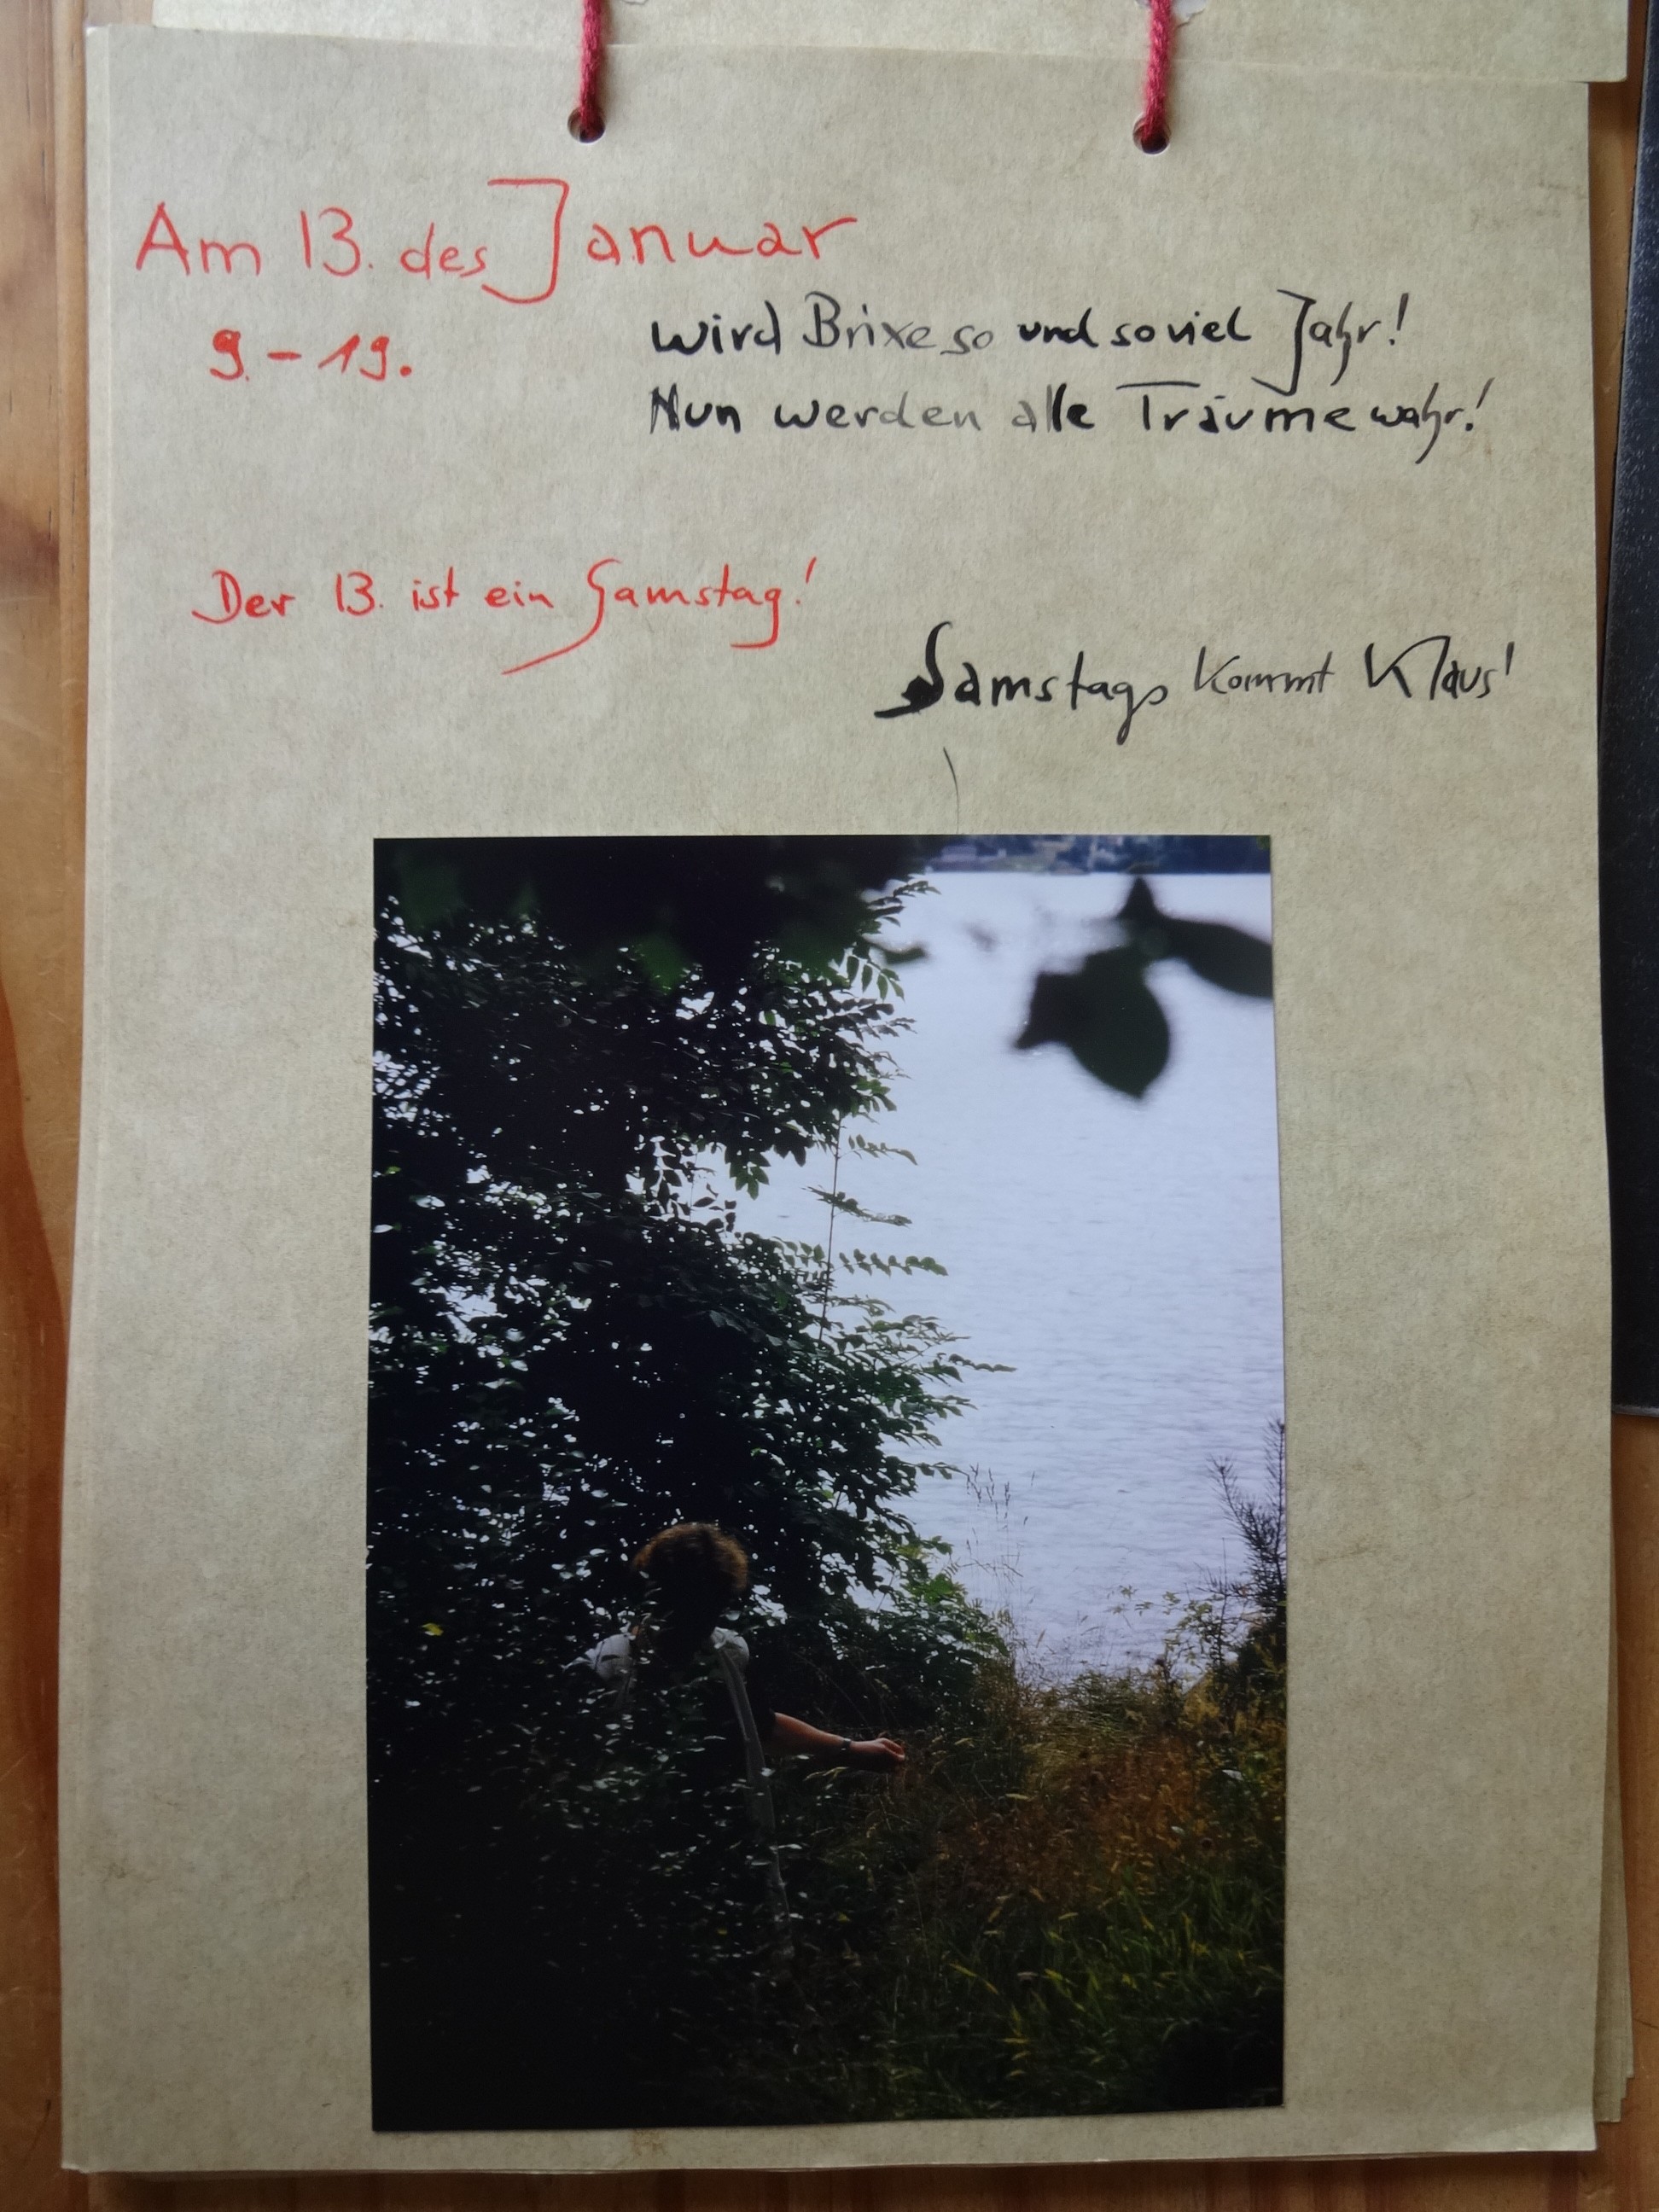 Am 13. des Januar
9. - 19.
wird Brixe so und soviel Jahr!
Nun werden alle Träume wahr!
Der 13. ist ein Samstag!
Samstags kommt Klaus!